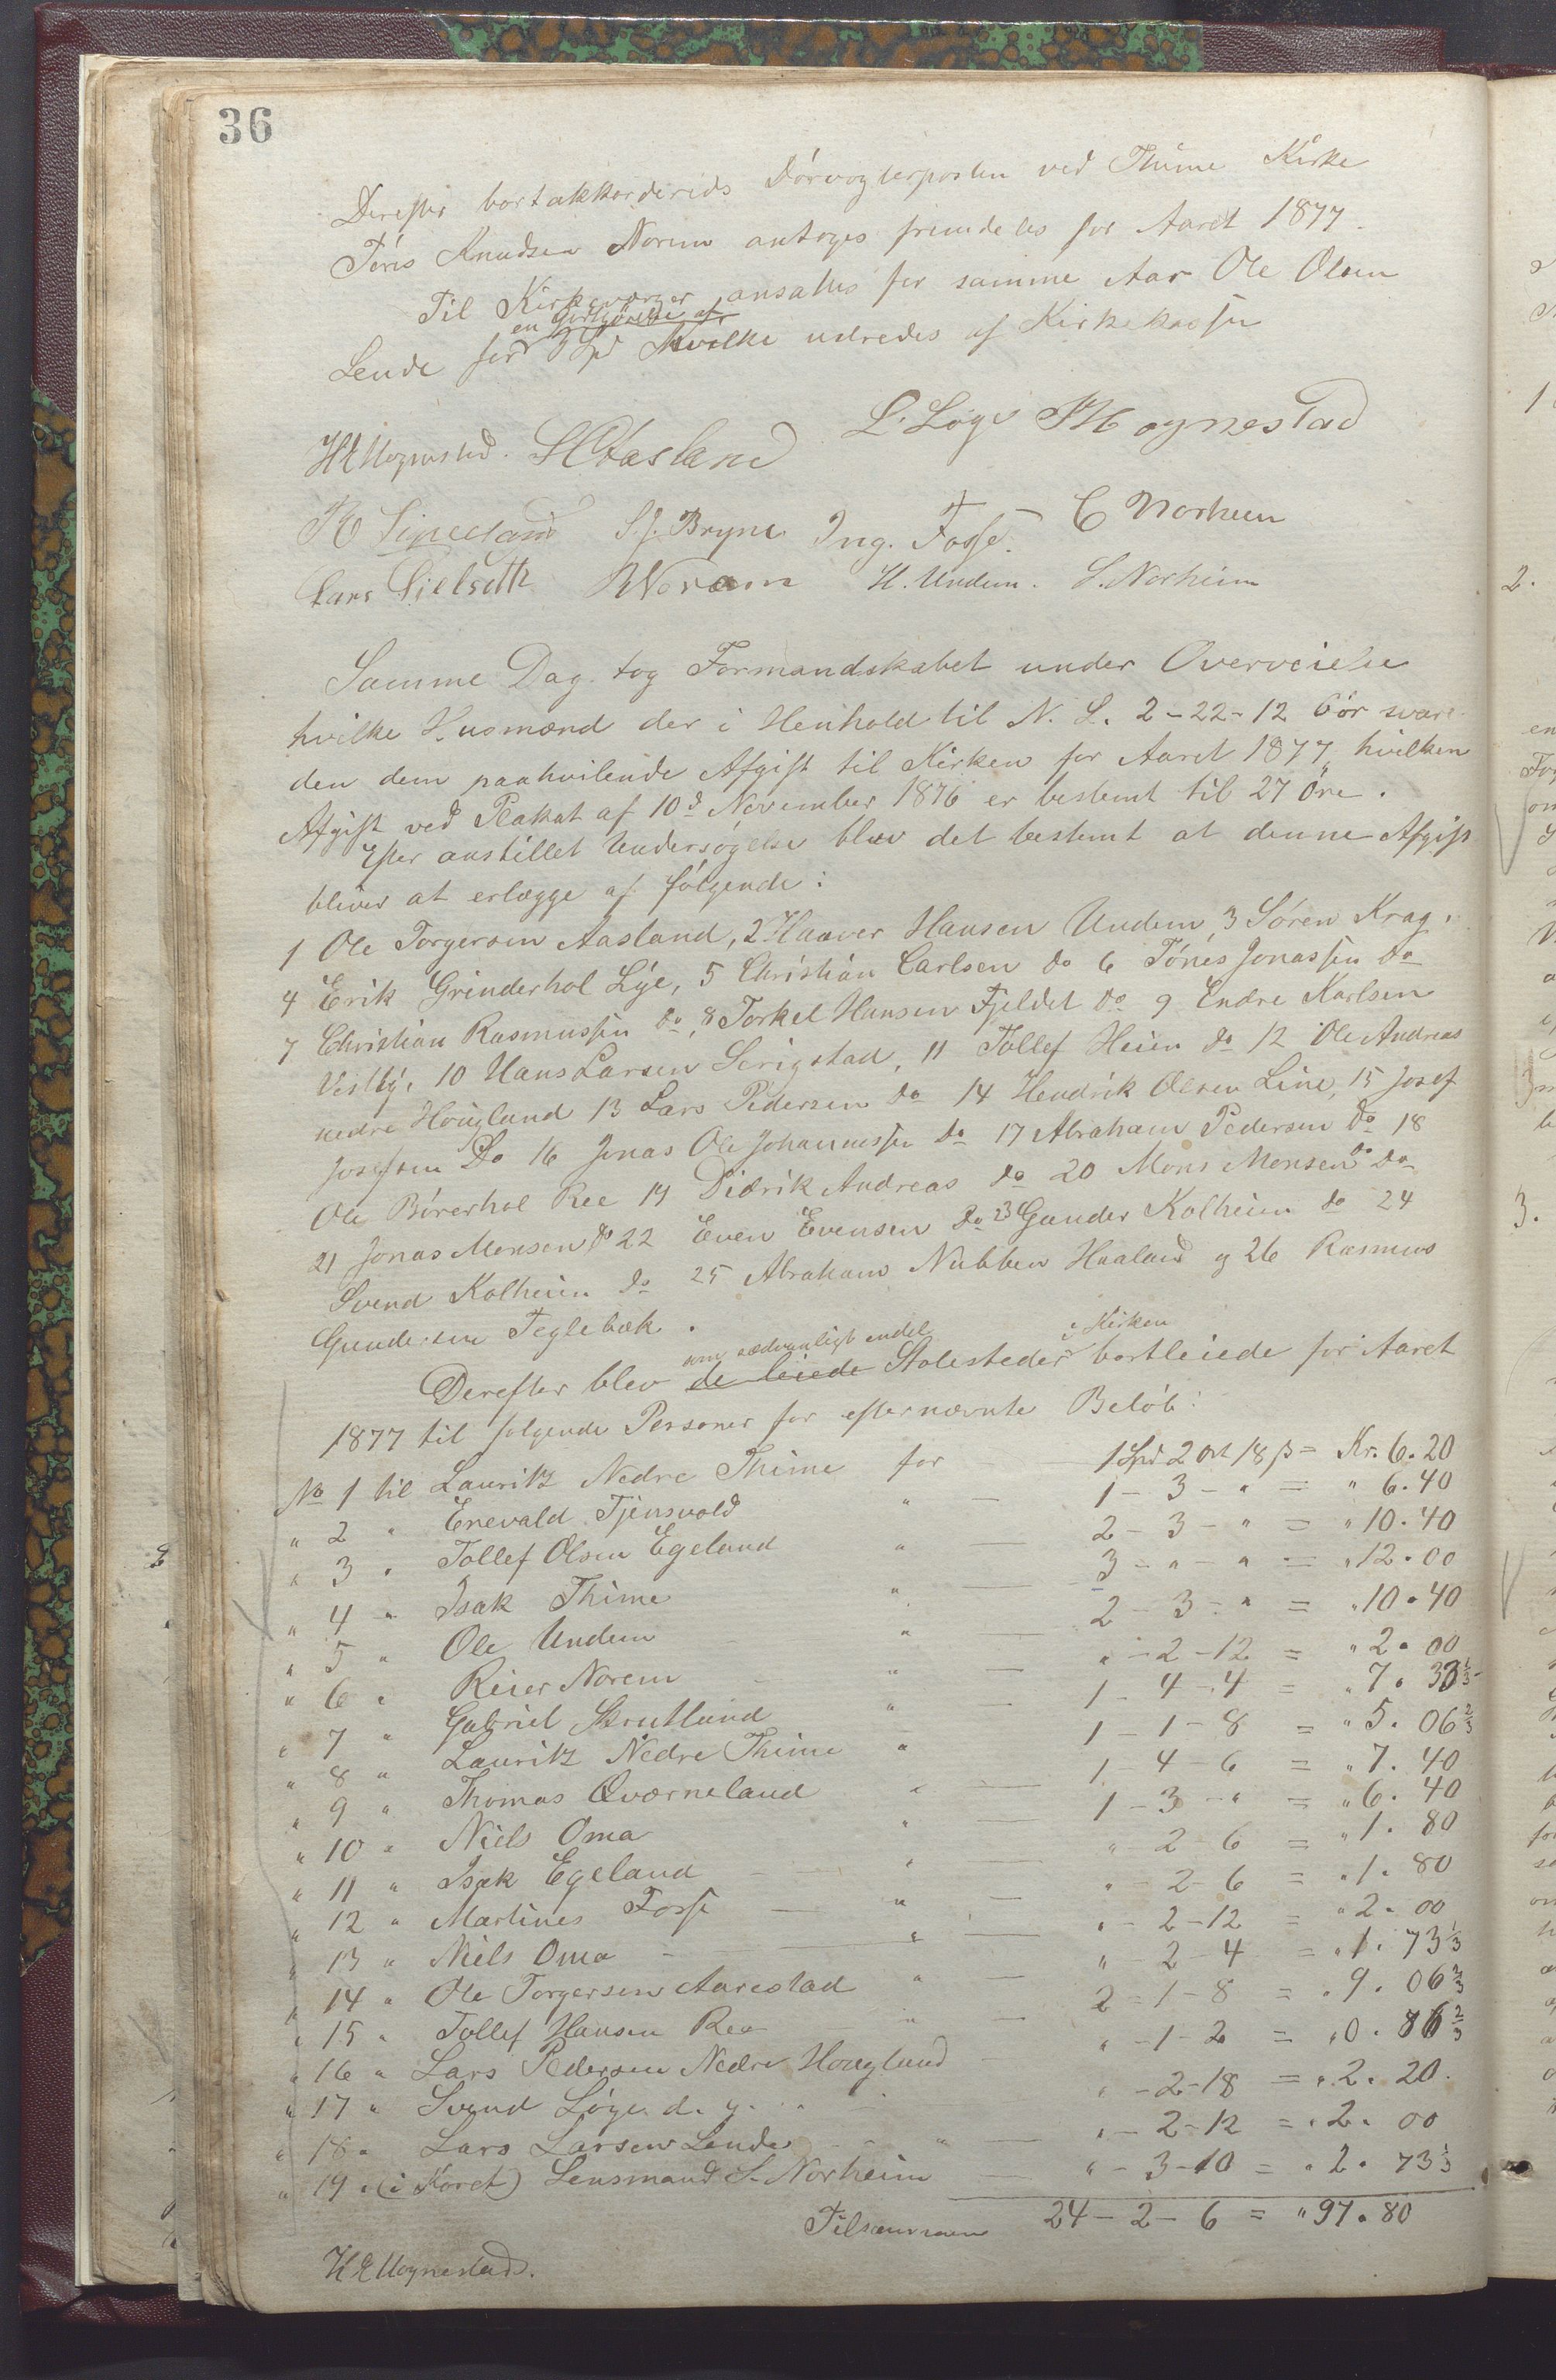 36
Derefter bortakkorderedes Dörvogterposten ved Thime Kirke
Tönis Knudsen Norem antoges fremdeles for Aaret 1877.
Til Kirkeværger ansattes for samme Aar Ole Olsen
en Godtgörelse af
Lende for 3 Spd hvilke udredes af Kirkekassen
L. Löge M ognestad
H E Mognestad. S O Aasland
R Lineland S. J. Bryne Ing. Fosse. C Norheim
Lars Sielseth R Noræm H. Undem. S. Norheim
Samme Dag tog Formandskabet under Overveielse
hvilke Husmænd der i Henhold til N. L. 2-22-12 bör svare
den dem paahvilende Afgift til Kirken for Aaret 1877, hvilken
Afgift ved Plakat af 10d November 1876 er bestemt til 27 Öre.
Efter anstillet Undersögelse blev det bestemt at denne Afgift
bliver at erlægge af fölgende:
1 Ole Torgersen Aasland, 2 Haaver Hansen Undem, 3 Sören Krag.
4 Erik Grinderhol Lye, 5 Christian Carlsen do 6 Tönes Jonassen do
7 Christian Rasmussen do, 8 Torkel Hansen Fjeldet do 9 Endre Karlsen
Vestly, 10 Hans Larsen Serigstad, 11 Tollef Heien do 12 Ole Andreas
nedre Höugland 13 Lars Pedersen do 14 Hendrik Olsen Line, 15 Josef
Josefsen Do 16 Jonas Ole Johannessen do 17 Abraham Pedersen do 18
Ole Börerhol Ree 19 Didrik Andreas do 20 Mons Monsen do
21 Jonas Monsen do 22 Even Evensen do 23 Gunder Kolheim do 24
Svend Kolheim do 25 Abraham Nubben Haaland og 26 Rasmus
Gundersen Teglebæk.
som sædvanligt endel i Kirken
Derefter blev de leiede Stolesteder bortleiede for Aaret
1877 til fölgende Personer for efternævnte Belöb:
No 1 til Lauritz Nedre Thime for 1 Spd 2 Ort 18 ß = Kr. 6.20
" 2 " Enevald Tjensvold " 1 - 3 - " = " 6.40
" 3 " Tollef Olsen Egeland " 2 - 3 - " = " 10.40
" 4 " Isak Thime " 3 - " - " = " 12.00
" 5 " Ole Undem " 2 - 3 - " = " 10.40
" 6 " Reier Norem " " - 2 - 12 = " 2.00
" 7 " Gabriel Skrutland " 1 - 4 - 4 = " 7.33 1/3
" 8 " Lauritz Nedre Thime " 1 - 1 - 8 = " 5.06 2/3
" 9 " Thomas Qværneland " 1 - 4 - 6 = " 7.40
" 10 " Niels Oma " 1 - 3 - " = " 6.40
" 11 " Isak Egeland " " - 2 - 6 = " 1.80
" 12 " Martines Fosse " " - 2 - 6 = " 1.80
" 13 " Niels Oma " " - 2 - 12 = " 2.00
" 14 " Ole Torgersen Aarestad " " - 2 - 4 = " 1.73 1/3
" 15 " Tollef Hansen Ree " 2 - 1 - 8 = " 9.06 2/3
" 16 " Lars Pedersen Nedre Hougland " - 1 - 2 = " 0.86 2/3
" 17 " Svend Löge d. y. " " - 2 - 18 = " 2.20.
" 18 " Lars Larsen Lende " " - 2 - 12 = " 2.00
" 19 " (i Koret) Lensmand S. Norheim " - 3 - 10 = " 2.73 1/3
Tilsammen 24 - 2 - 6 = " 97.80
H E Mognestad.